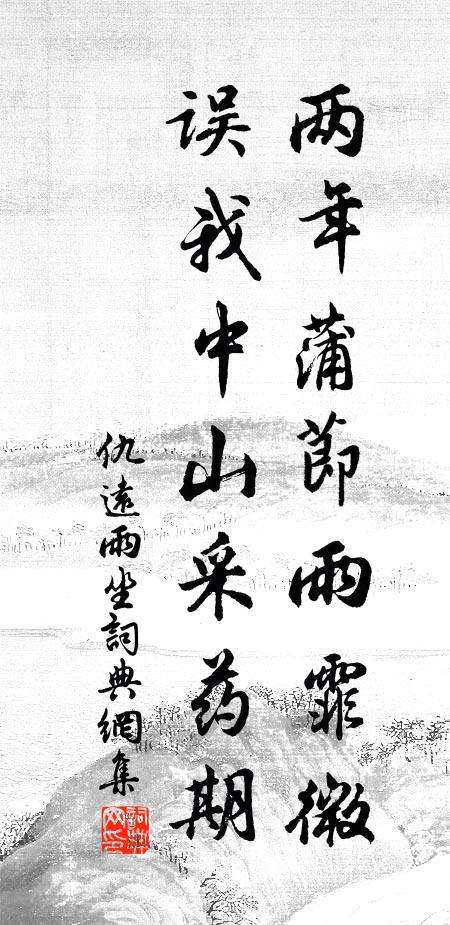 两年蒲節雨霏微
误我中山采药期
仇遠雨坐詞典網集
詞典网印